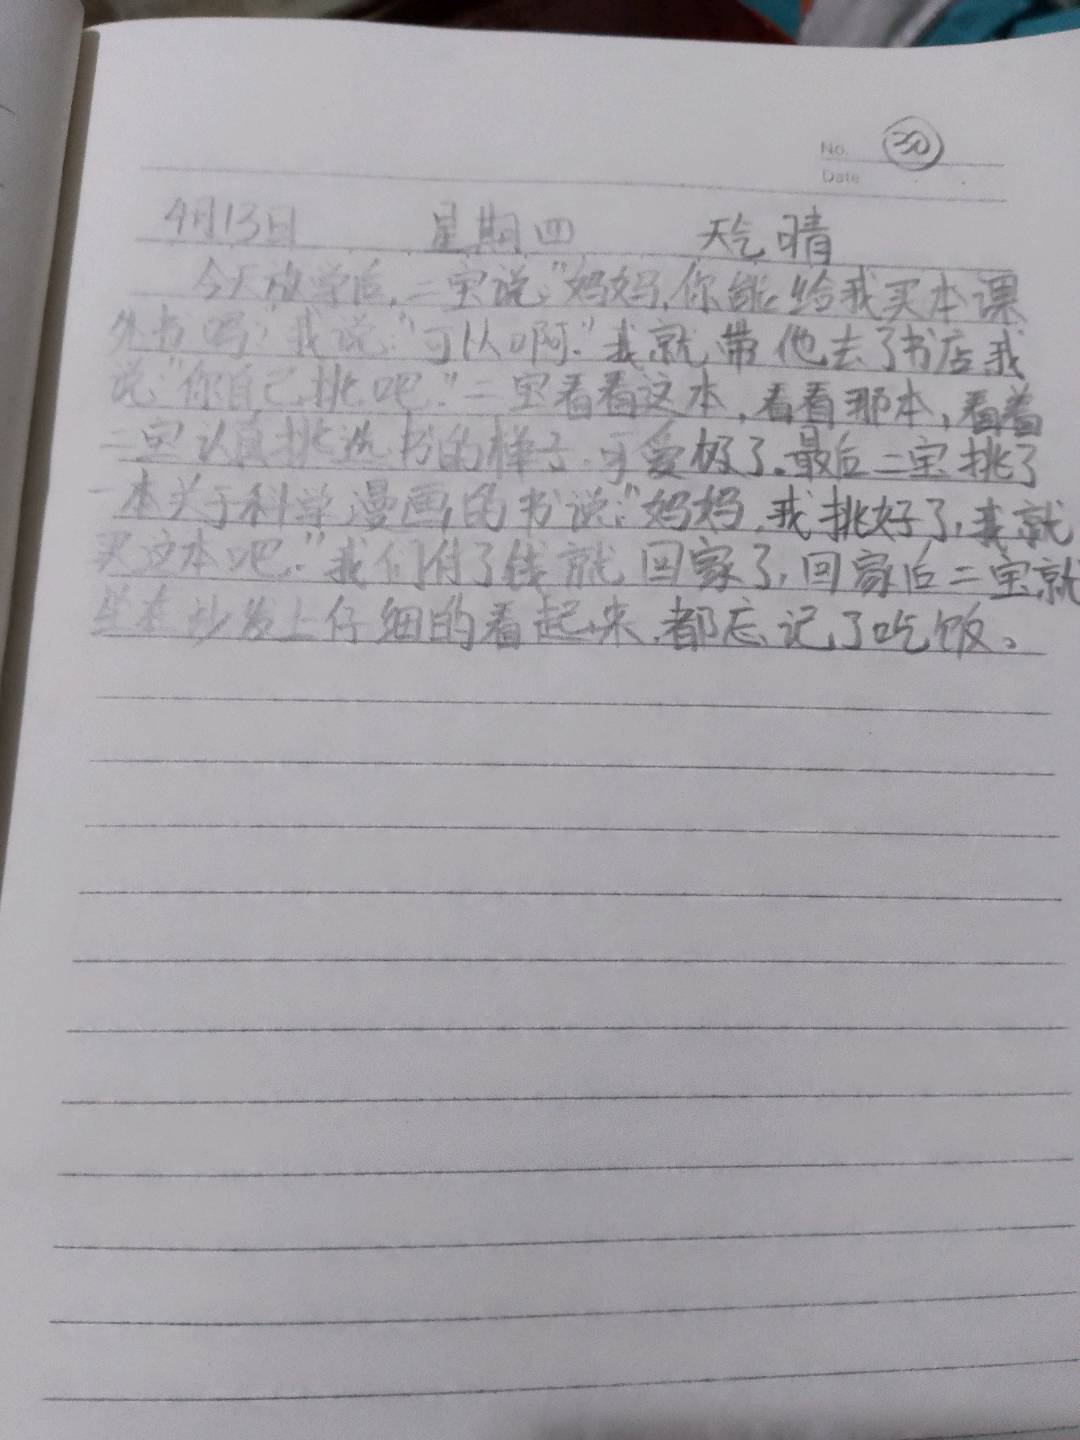 No. 30
Date
4月13日 星期四 天气晴
今天放学后,二宝说:"妈妈,你能给我买本课
外书吗"我说:"可以啊."我就带他去了书店我
说:"你自己挑吧."二宝看看这本,看看那本,看着
二宝认真挑选书的样子,可爱极了。最后二宝挑了
一本关于科学漫画的书说:"妈妈,我挑好了,我就
买这本吧."我们付了钱就回家了,回家后二宝就
坐在沙发上仔细的看起来,都忘记了吃饭。